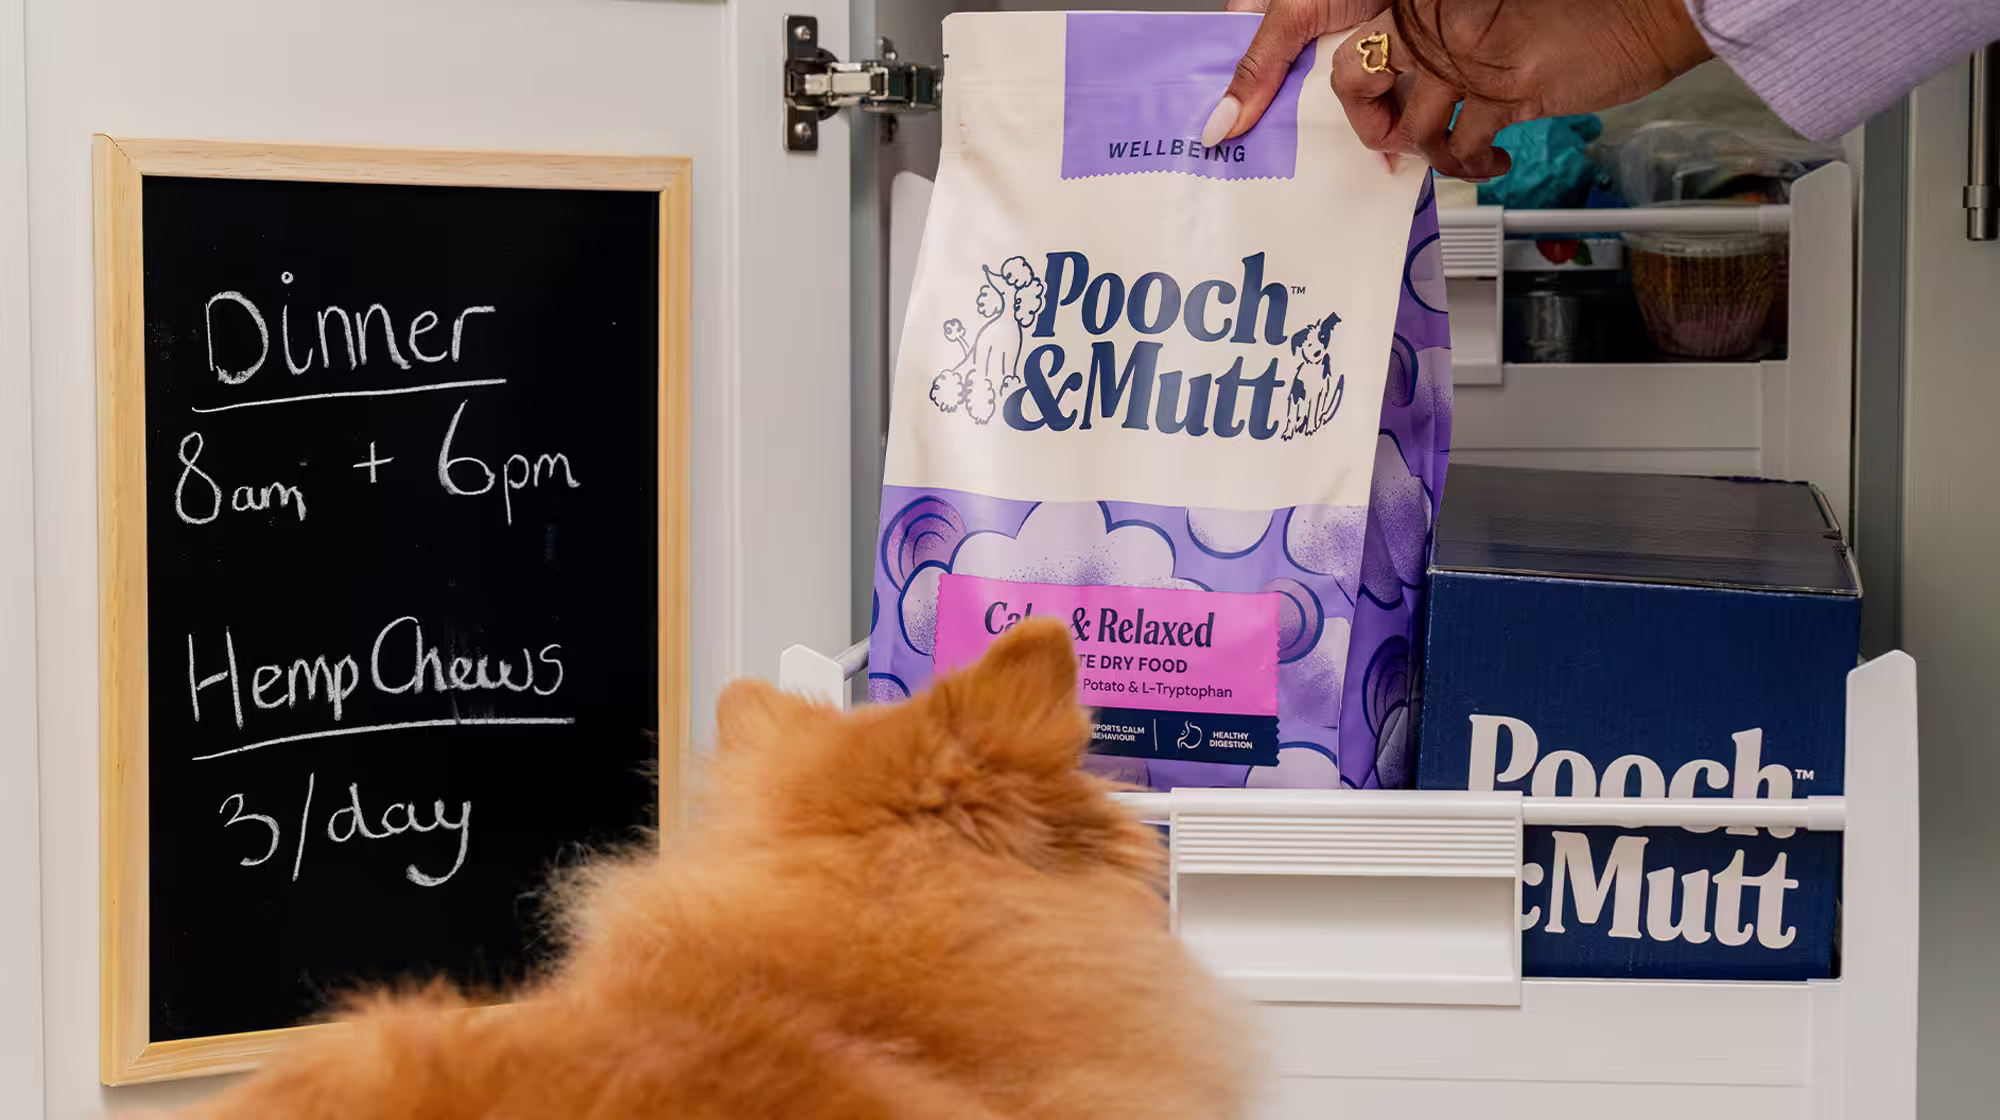 Dinner
8am + 6pm
Hemp Chews
3/day
WELLBEING
Pooch™
&Mutt
& Relaxed
DRY FOOD
Potato & L-Tryptophan
CALM
BEHAVIOUR
HEALTHY
DIGESTION
Pooch™
Mutt